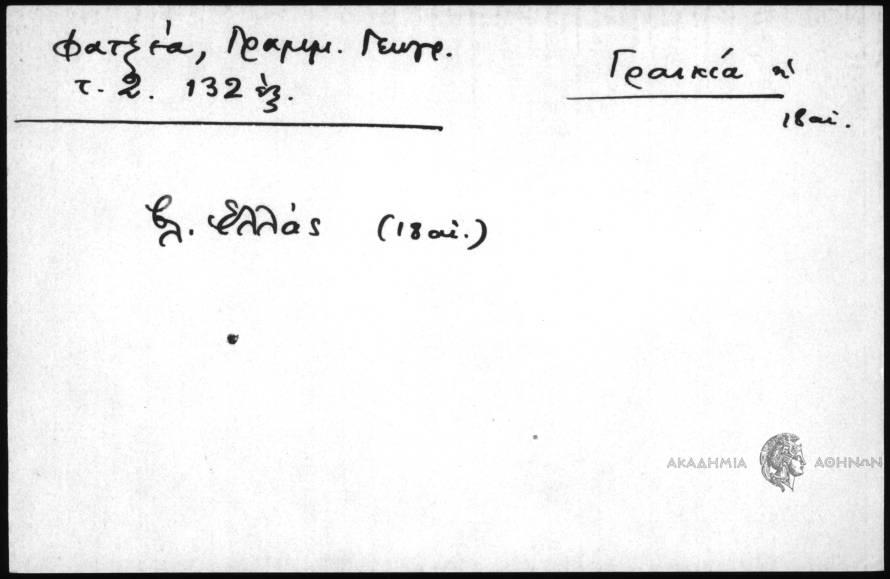 Φατζέα, Γραμμ. Γεωγρ.
τ. 2. 132 ἑξ.
Γραικία ἡ
18 αἰ.
βλ. Ἑλλάς (18 αἰ.)
ΑΚΑΔΗΜΙΑ ΑΘΗΝΩΝ